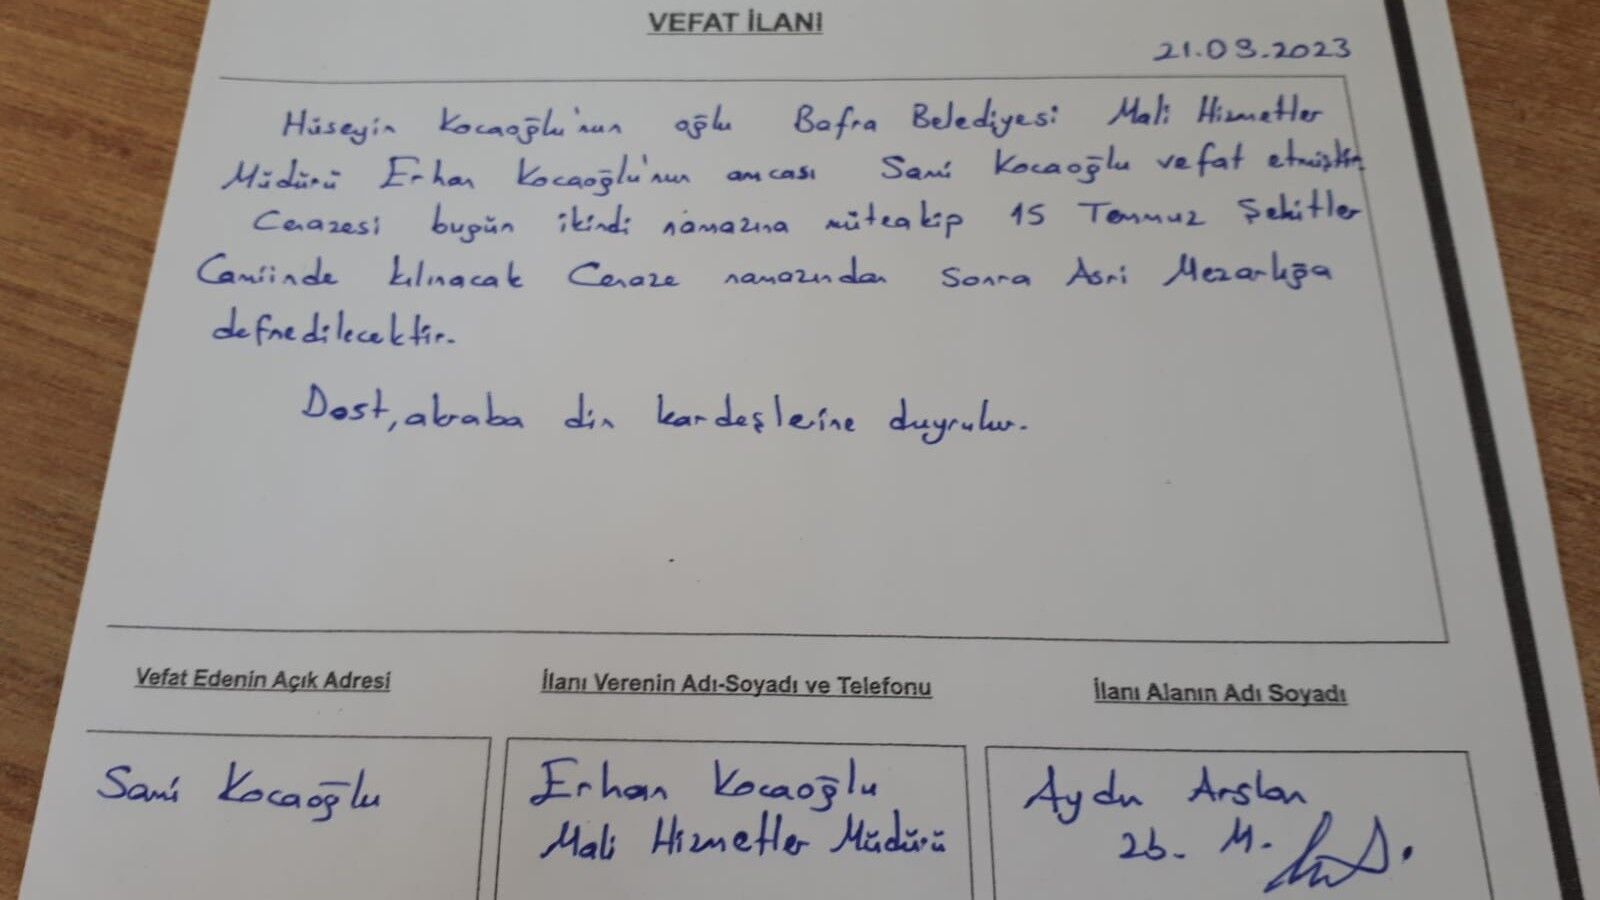 VEFAT İLANI
21.09.2023
Hüseyin Kocaoğlu'nun oğlu Bafra Belediyesi Mali Hizmetler
Müdürü Erhan Kocaoğlu'nun amcası Sami Kocaoğlu vefat etmiştir.
Cenazesi bugün ikindi namazına müteakip 15 Temmuz Şehitler
Camiinde kılınacak Cenaze namazından sonra Asri Mezarlığa
defnedilecektir.
Dost, akraba din kardeşlerine duyrulur.
Vefat Edenin Açık Adresi
İlanı Verenin Adı-Soyadı ve Telefonu
İlanı Alanın Adı Soyadı
Sami Kocaoğlu
Erhan Kocaoğlu
Mali Hizmetler Müdürü
Aydın Arslan
Zb. M.